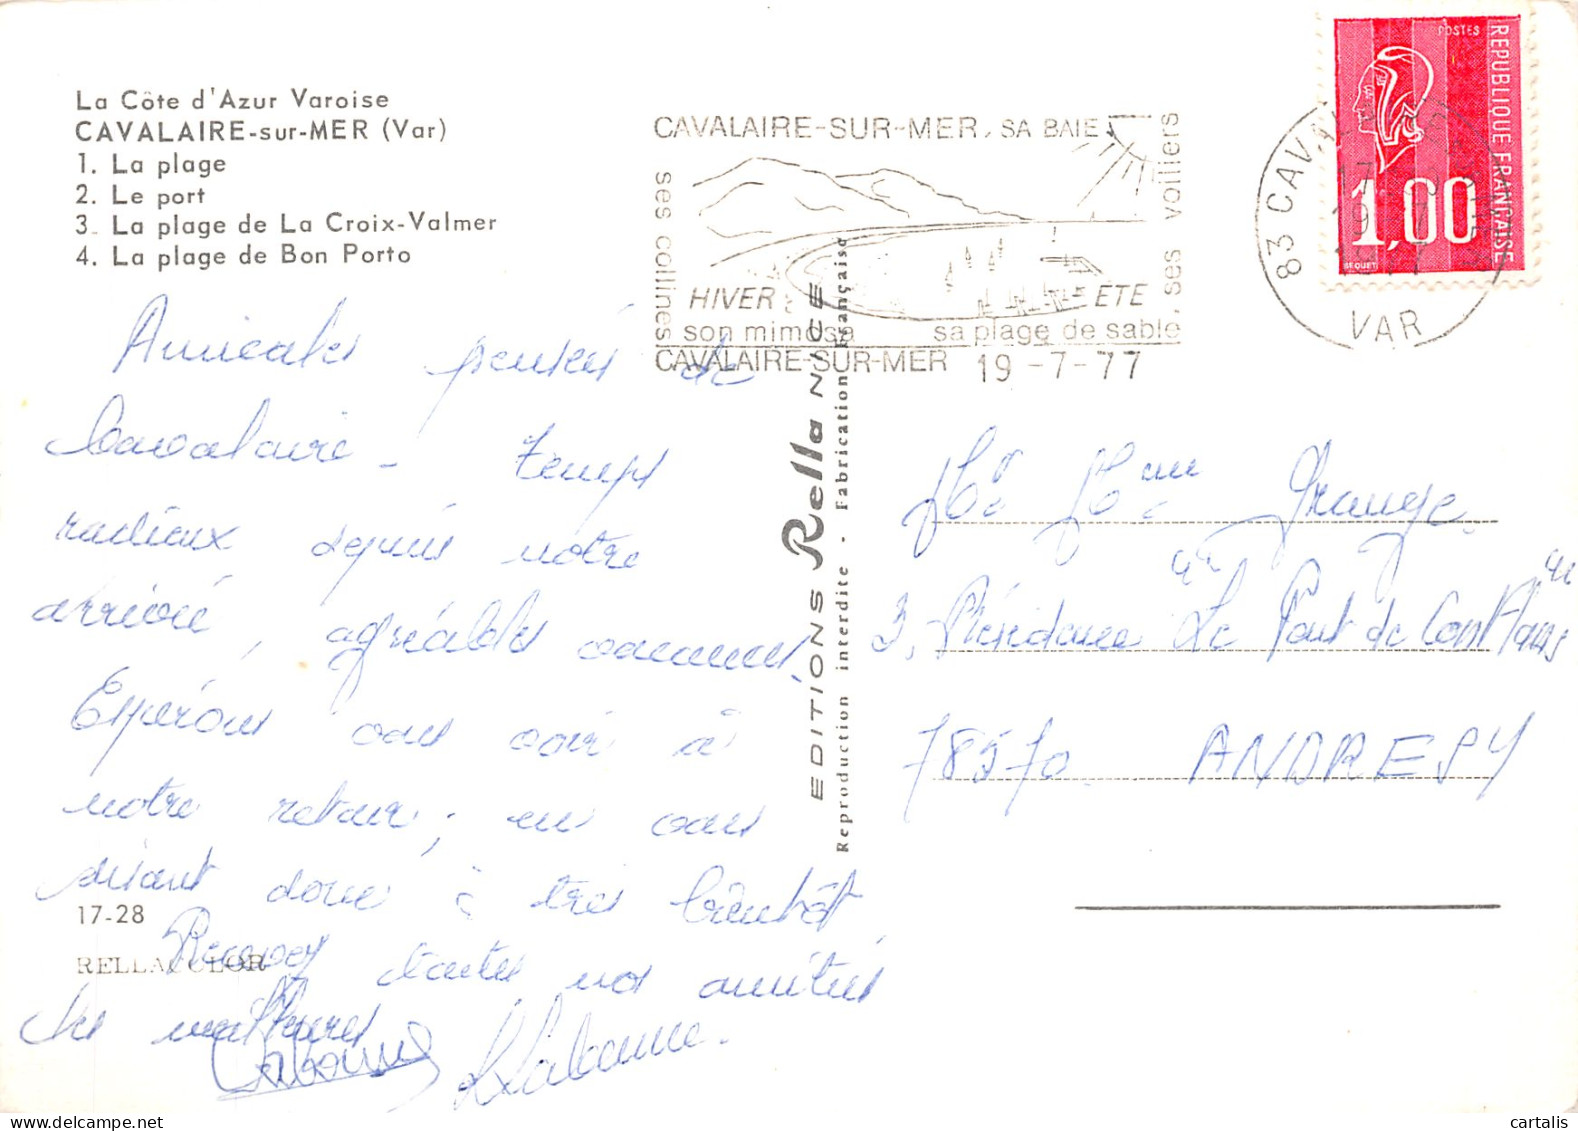 La Côte d'Azur Varoise
CAVALAIRE-sur-MER (Var)
1. La plage
2. Le port
3. La plage de La Croix-Valmer
4. La plage de Bon Porto
CAVALAIRE-SUR-MER, SA BAIE
ses collines
ses voiliers
HIVER
son mimosa
ETE
sa plage de sable,
CAVALAIRE-SUR-MER 19-7-77
POSTES
REPUBLIQUE FRANÇAISE
1,00
BEQUET
83 CAV
VAR
Amicales pensées de
Cavalaire - Temps
radieux depuis notre
arrivée, agréables vacances.
Espérons vous voir à
notre retour ; en vous
disant donc à très bientôt
Recevez toutes nos amitiés
les meilleures
Labonne.
EDITIONS Rella NICE
Reproduction interdite - Fabrication Française
Mr. Mme Grange
3, Résidence "Le Pont de Conflans"
78570 ANDRESY
17-28
RELLACOLOR
cartalis